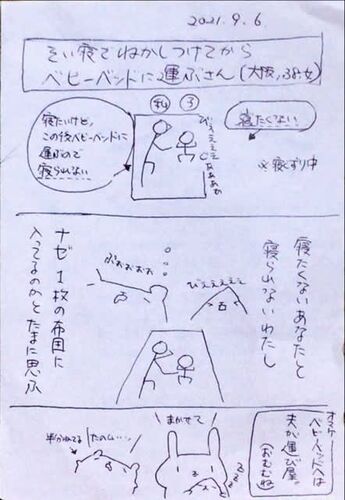 2021.9.6
そい寝でねかしつけてから
ベビーベッドに運ぶさん(大阪,38,女)
私
子
寝たいけど、
この後ベビーベッドに
運ぶので
寝られない
びえええええああああ
寝たくない
※寝ぐずり中
寝たくないあなたと
寝られないわたし
ぷおおおお
びえええええ
ナゼ1枚の布団に
入ってるのかと
たまに思ふ
ベビーベッドへは
夫が運び屋。
(おむむね
まかせて
たのしい…
半分ねてる